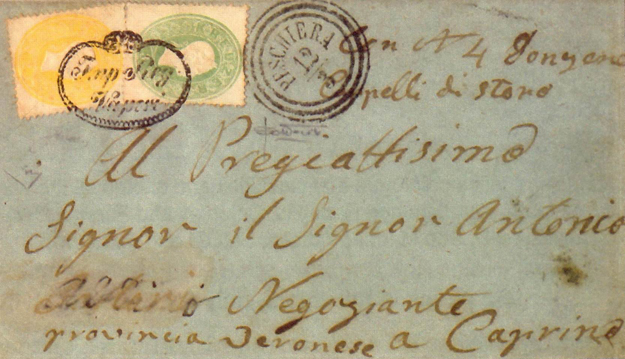 Imp. Reg.
Vapori
PESCHIERA
12
Con N 4 Donzene
Capelli di storo
Al Pregeattisimo
Signor il Signor Antonio
Negoziante
provincia Veronese a Caprino